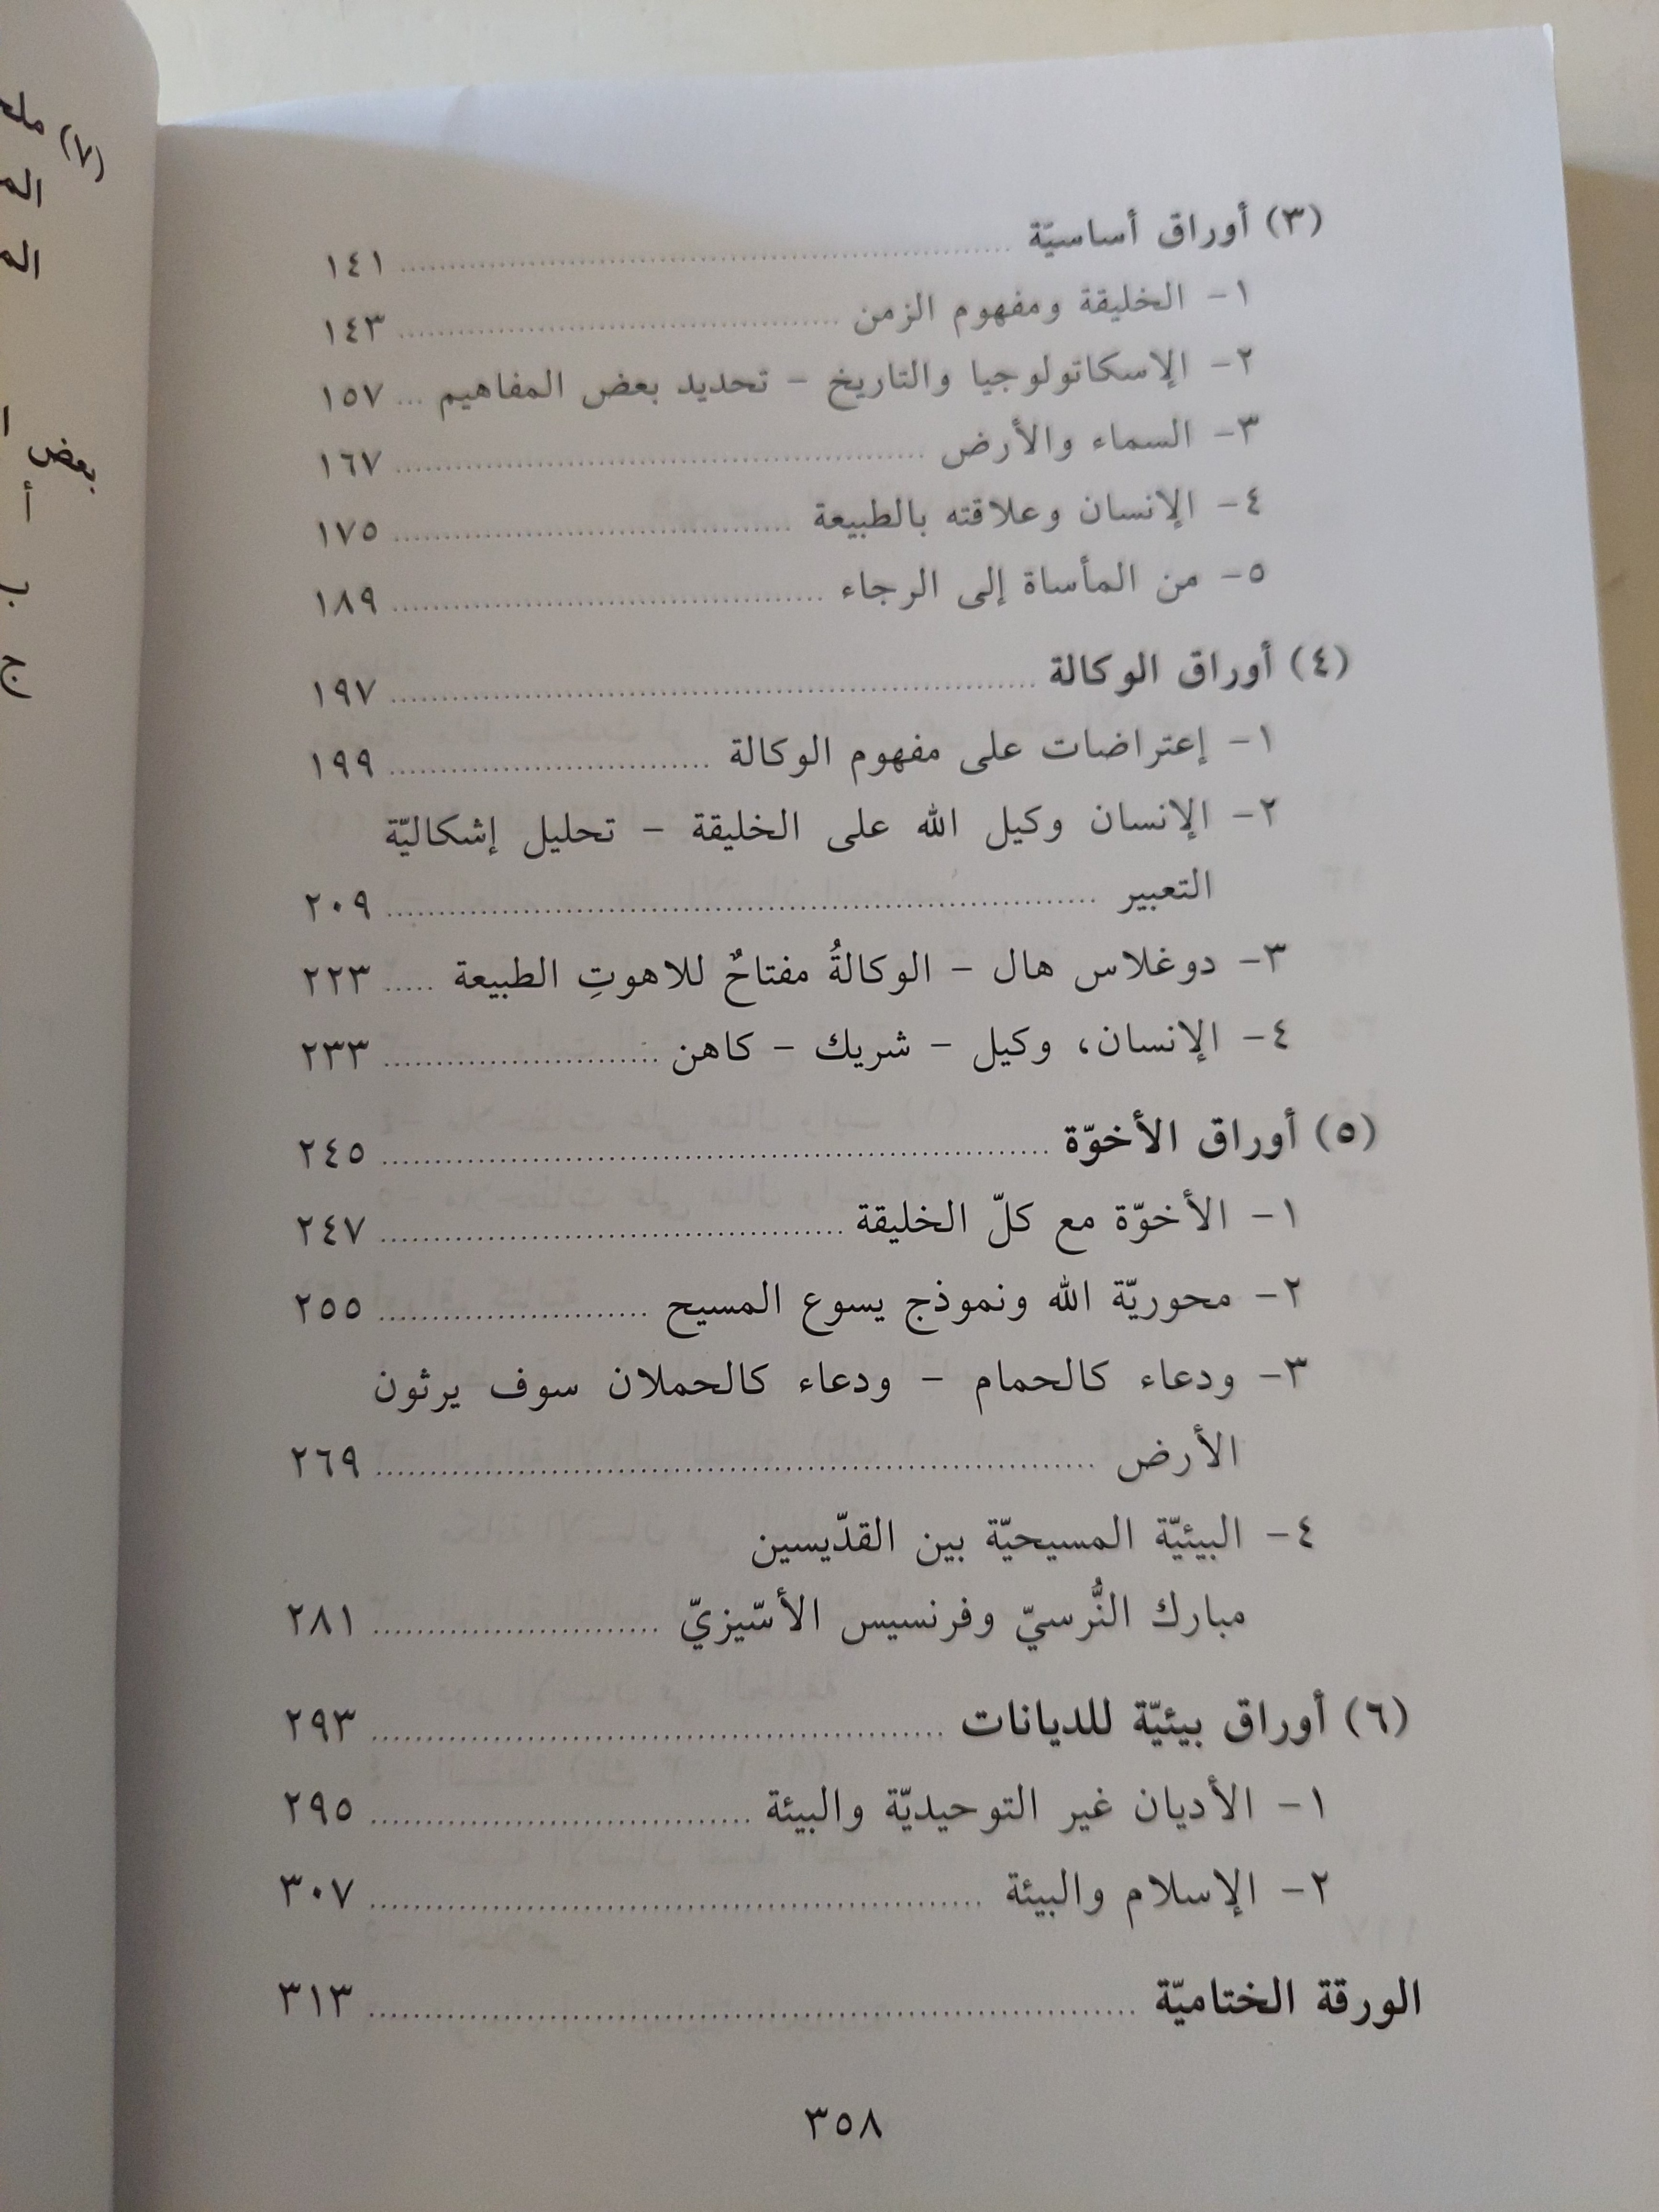 (٣) أوراق أساسيّة ........ ١٤١
١- الخليقة ومفهوم الزمن ........ ١٤٣
٢- الإسكاتولوجيا والتاريخ – تحديد بعض المفاهيم ... ١٥٧
٣- السماء والأرض ........ ١٦٧
٤- الإنسان وعلاقته بالطبيعة ........ ١٧٥
٥- من المأساة إلى الرجاء ........ ١٨٩
(٤) أوراق الوكالة ........ ١٩٧
١- إعتراضات على مفهوم الوكالة ........ ١٩٩
٢- الإنسان وكيل الله على الخليقة – تحليل إشكاليّة
التعبير ........ ٢٠٩
٣- دوغلاس هال – الوكالةُ مفتاحٌ للاهوتِ الطبيعة ..... ٢٢٣
٤- الإنسان، وكيل – شريك – كاهن ........ ٢٣٣
(٥) أوراق الأخوّة ........ ٢٤٥
١- الأخوّة مع كلّ الخليقة ........ ٢٤٧
٢- محوريّة الله ونموذج يسوع المسيح ........ ٢٥٥
٣- ودعاء كالحمام – ودعاء كالحملان سوف يرثون
الأرض ........ ٢٦٩
٤- البيئيّة المسيحيّة بين القدّيسين
مبارك النُّرسيّ وفرنسيس الأسّيزيّ ........ ٢٨١
(٦) أوراق بيئيّة للديانات ........ ٢٩٣
١- الأديان غير التوحيديّة والبيئة ........ ٢٩٥
٢- الإسلام والبيئة ........ ٣٠٧
الورقة الختاميّة ........ ٣١٣
٣٥٨
(٧)
بعض
أ
ب
ج